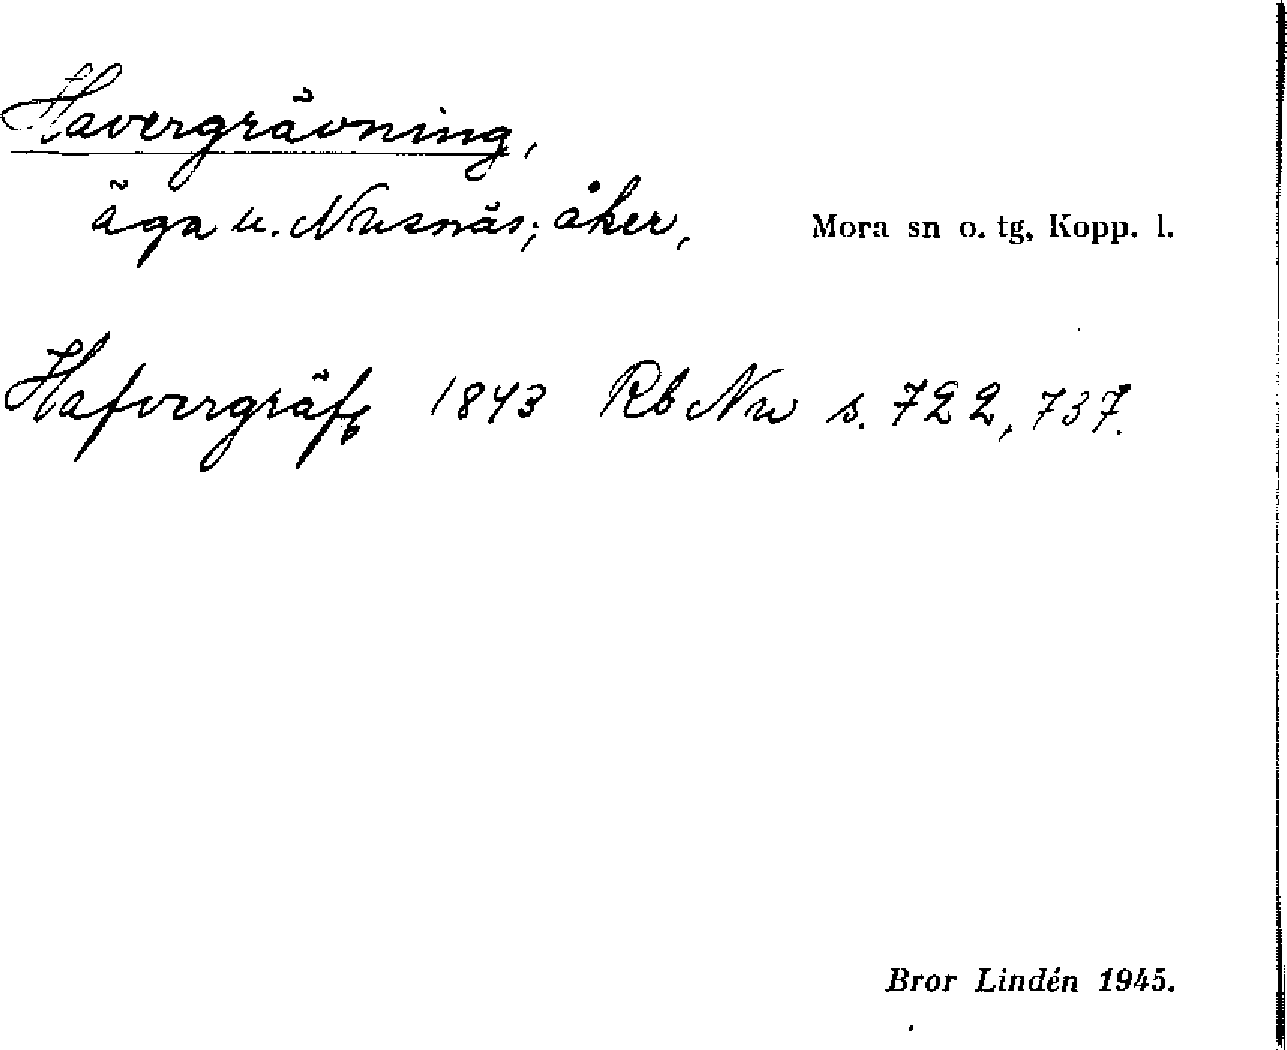 Havergrävning,
äga u. Nusnäs; åker, Mora sn o. tg, Kopp. l.
Hafvergräfg 1843 Rb Nu s. 722, 737.
Bror Lindén 1945.